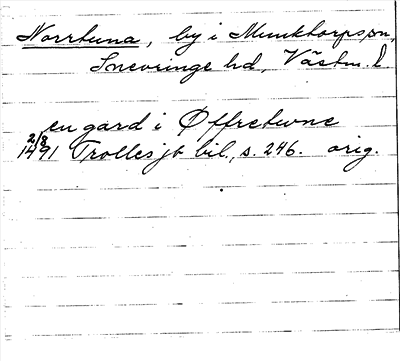 Norrtuna, by i Munktorps sn,
Snevringe hd, Västm. l.
en gård i Øffretwne
2/8
1491 Trolles jb bil., s. 246. orig.